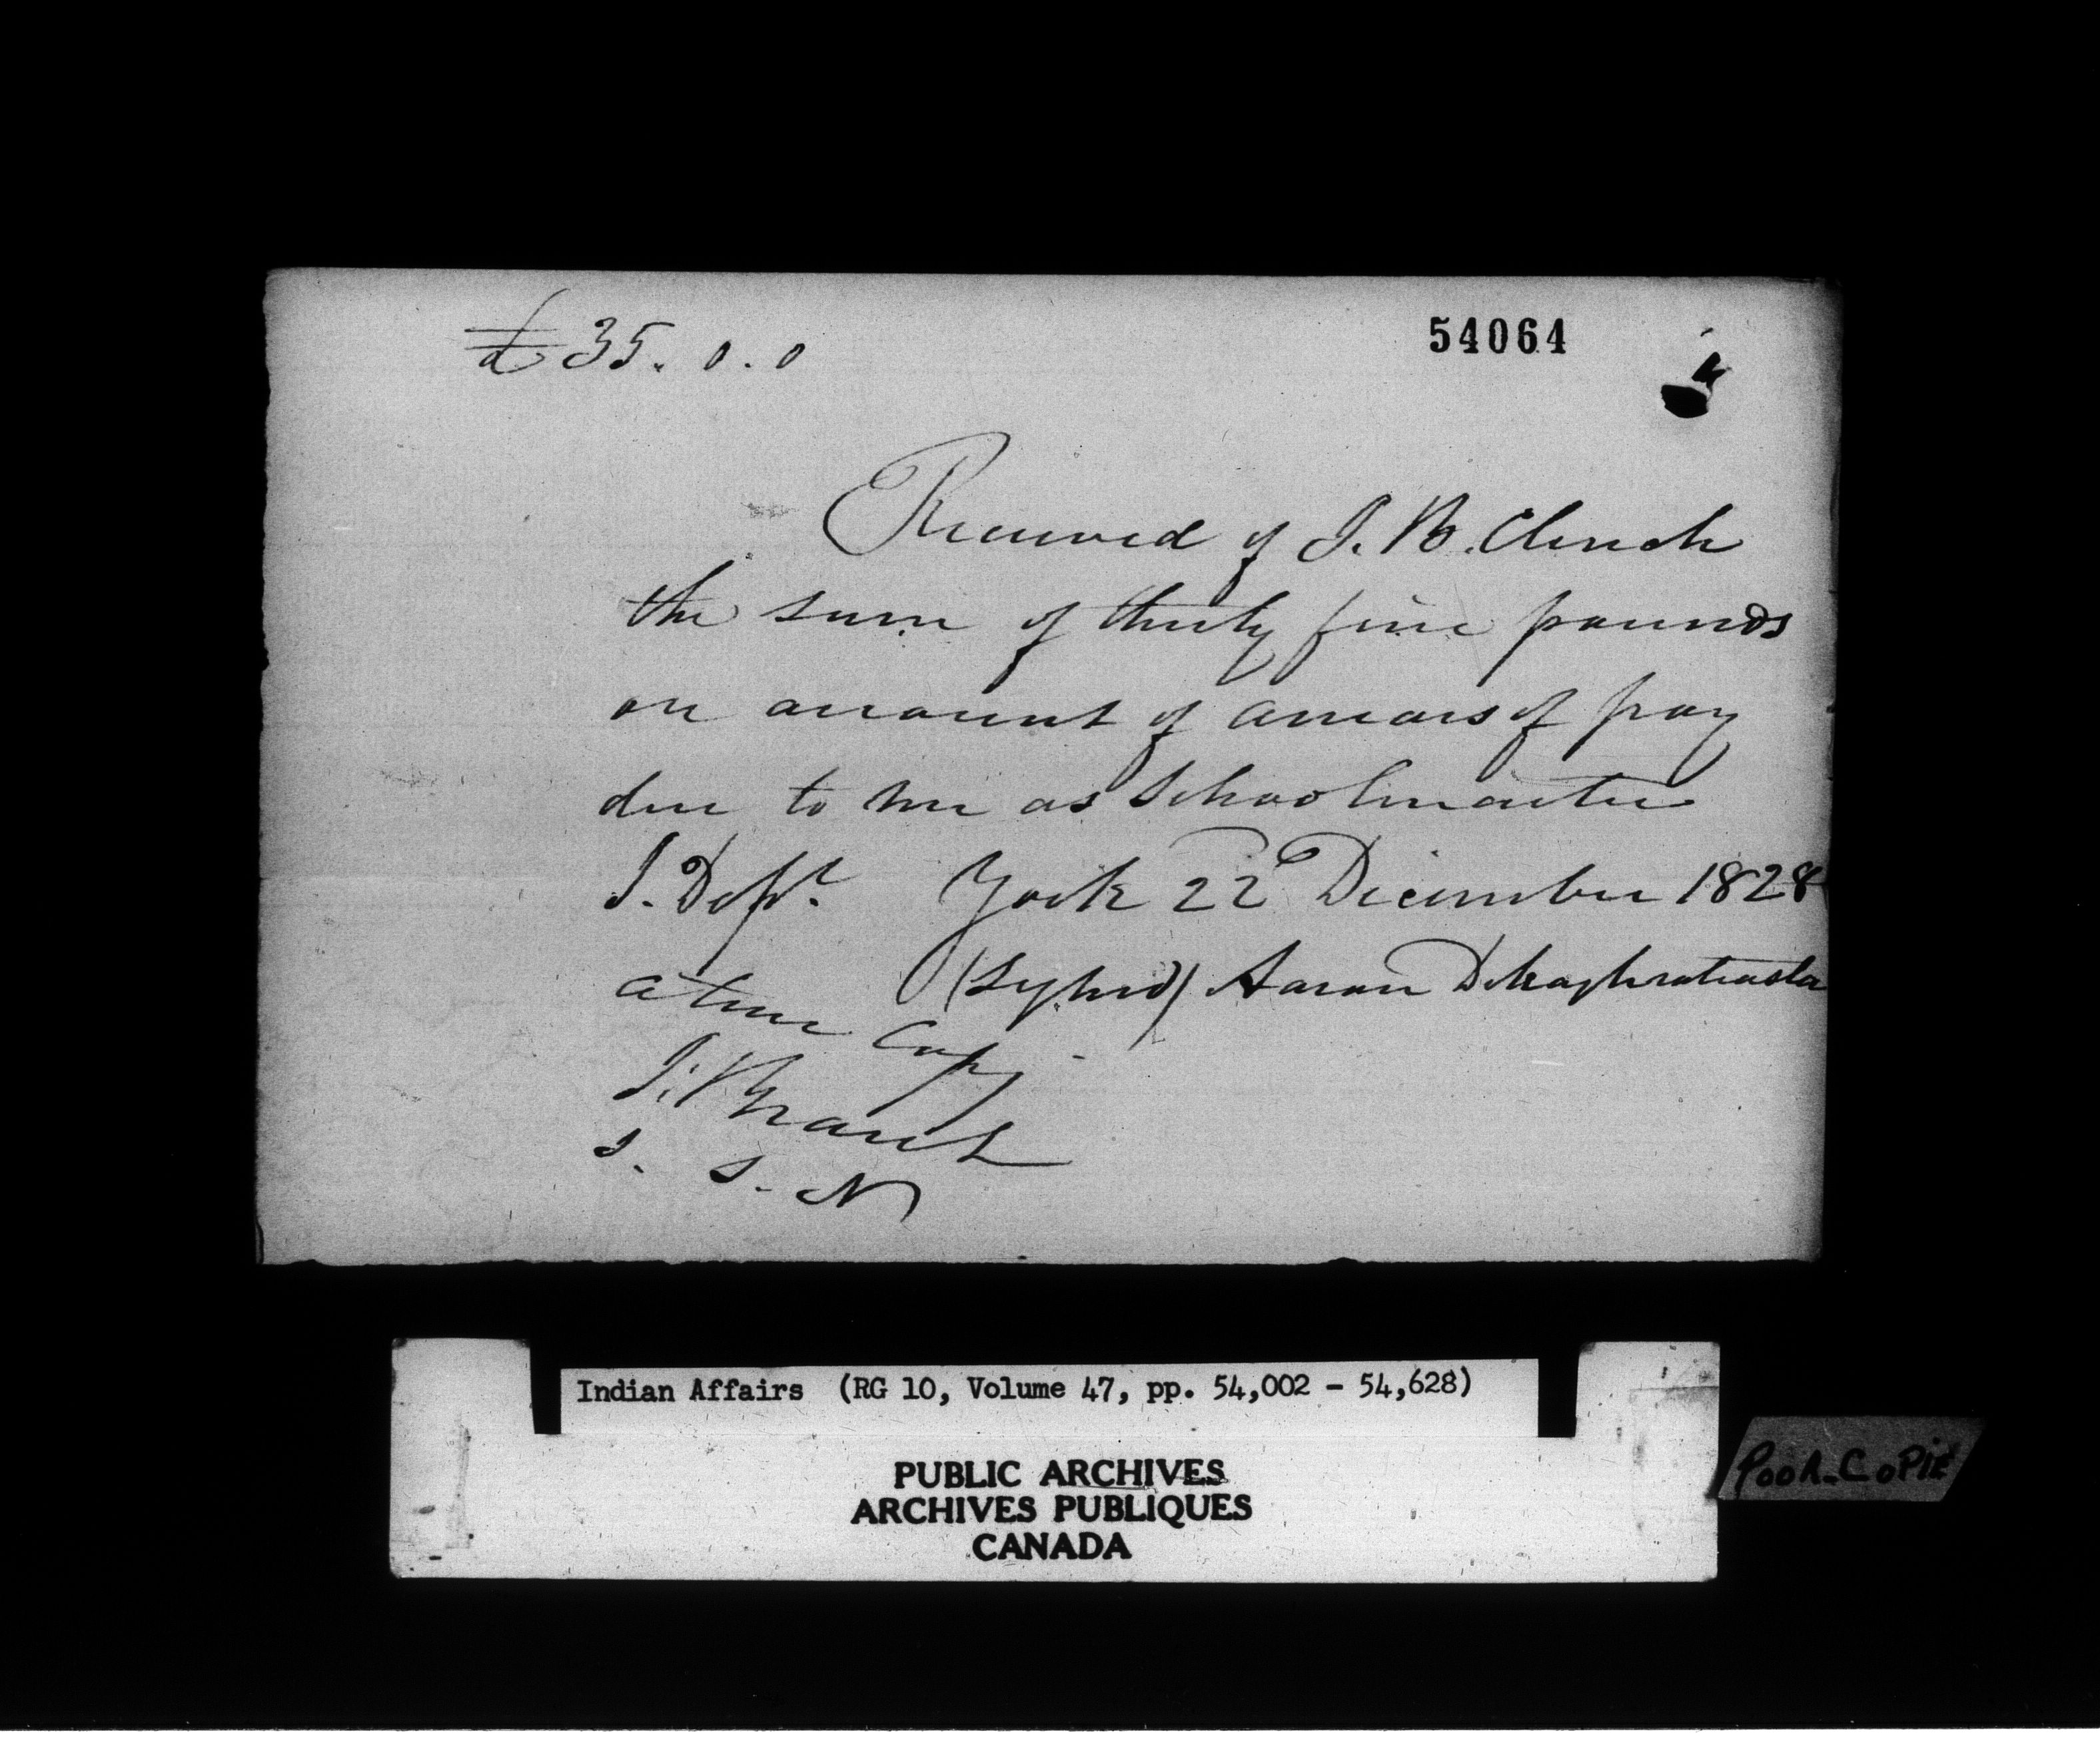 £35.0.0
54064
Received of J. B. Clench
the sum of thirty five pounds
on account of arrears of pay
due to me as Schoolmaster
I. Dept. York 22d December 1828
(Signed) Aaron
a true Copy
J: Brant
S. S. N
Indian Affairs (RG 10, Volume 47, pp. 54,002 - 54,628)
PUBLIC ARCHIVES
ARCHIVES PUBLIQUES
CANADA
POOR-COPIE